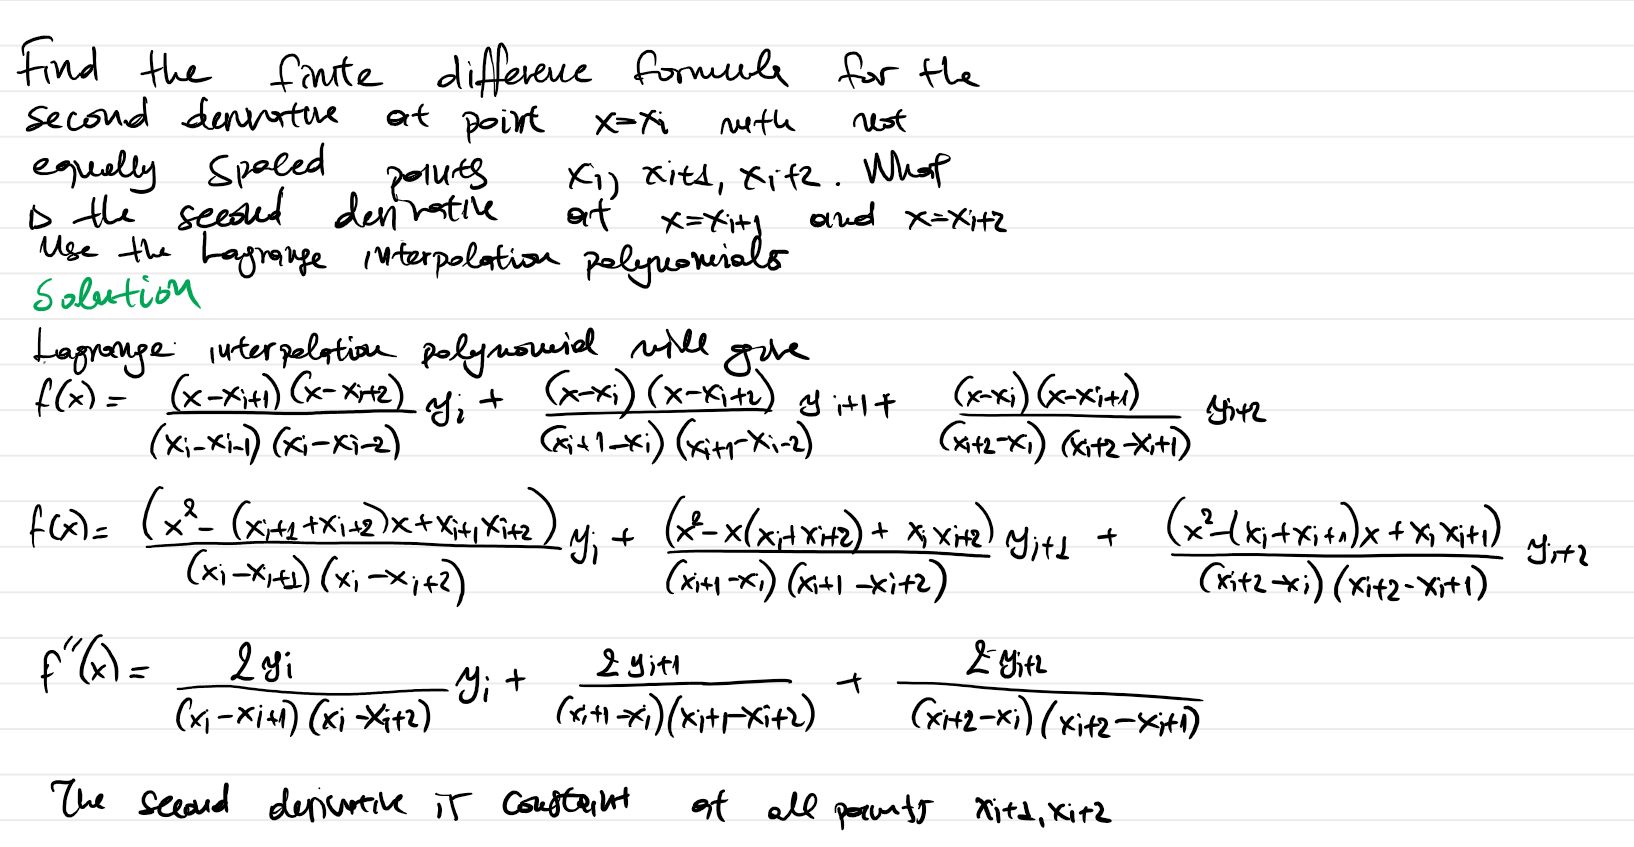 Find the finite difference formula for the
second derivative at point x=xi with not
equally spaced points xi, xi+1, xi+2. What
is the second derivative at x=xi+1 and x=xi+2
Use the Lagrange interpolation polynomials
Solution
Lagrange interpolation polynomial will give
f(x) = (x-xi+1)(x-xi+2)/(xi-xi-1)(xi-xi-2) yi + (x-xi)(x-xi+2)/(xi+1-xi)(xi+1-xi-2) yi+1 + (x-xi)(x-xi+1)/(xi+2-xi)(xi+2-xi+1) yi+2
f(x) = (x²-(xi+1+xi+2)x+xi+1xi+2)/(xi-xi+1)(xi-xi+2) yi + (x²-x(xi+xi+2)+xixi+2)/(xi+1-xi)(xi+1-xi+2) yi+1 + (x²-(xi+xi+1)x+xixi+1)/(xi+2-xi)(xi+2-xi+1) yi+2
f''(x) = 2yi/(xi-xi+1)(xi-xi+2) yi + 2yi+1/(xi+1-xi)(xi+1-xi+2) + 2yi+2/(xi+2-xi)(xi+2-xi+1)
The second derivative is constant at all points xi+1, xi+2